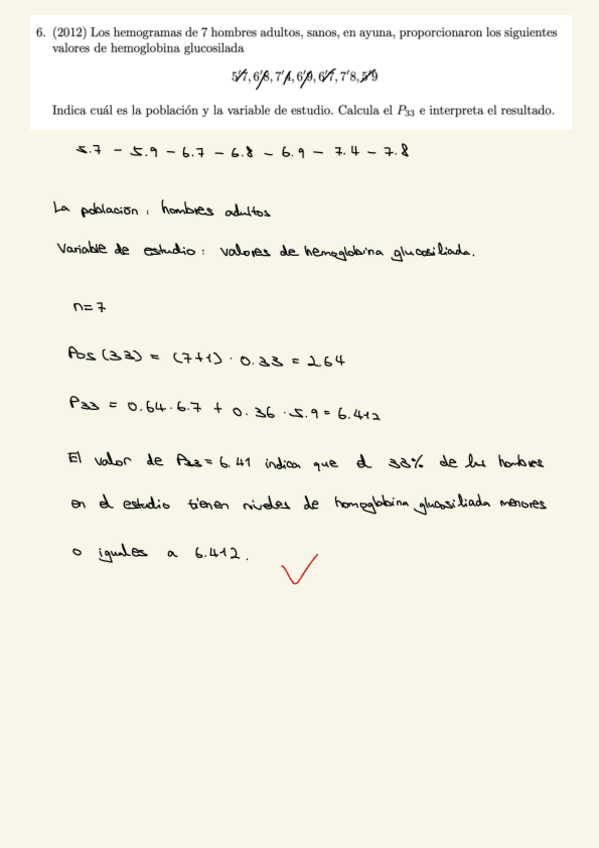 6. (2012) Los hemogramas de 7 hombres adultos, sanos, en ayuna, proporcionaron los siguientes
valores de hemoglobina glucosilada
5'7, 6'8, 7'4, 6'9, 6'7, 7'8, 5'9
Indica cuál es la población y la variable de estudio. Calcula el P33 e interpreta el resultado.
5.7 - 5.9 - 6.7 - 6.8 - 6.9 - 7.4 - 7.8
La población: hombres adultos
Variable de estudio: valores de hemoglobina glucosiliada.
n=7
Pos (33) = (7+1) · 0.33 = 2.64
P33 = 0.64 · 6.7 + 0.36 · 5.9 = 6.412
El valor de P33 = 6.41 indica que el 33% de los hombres
en el estudio tienen niveles de homoglobina glucosiliada menores
o iguales a 6.412.